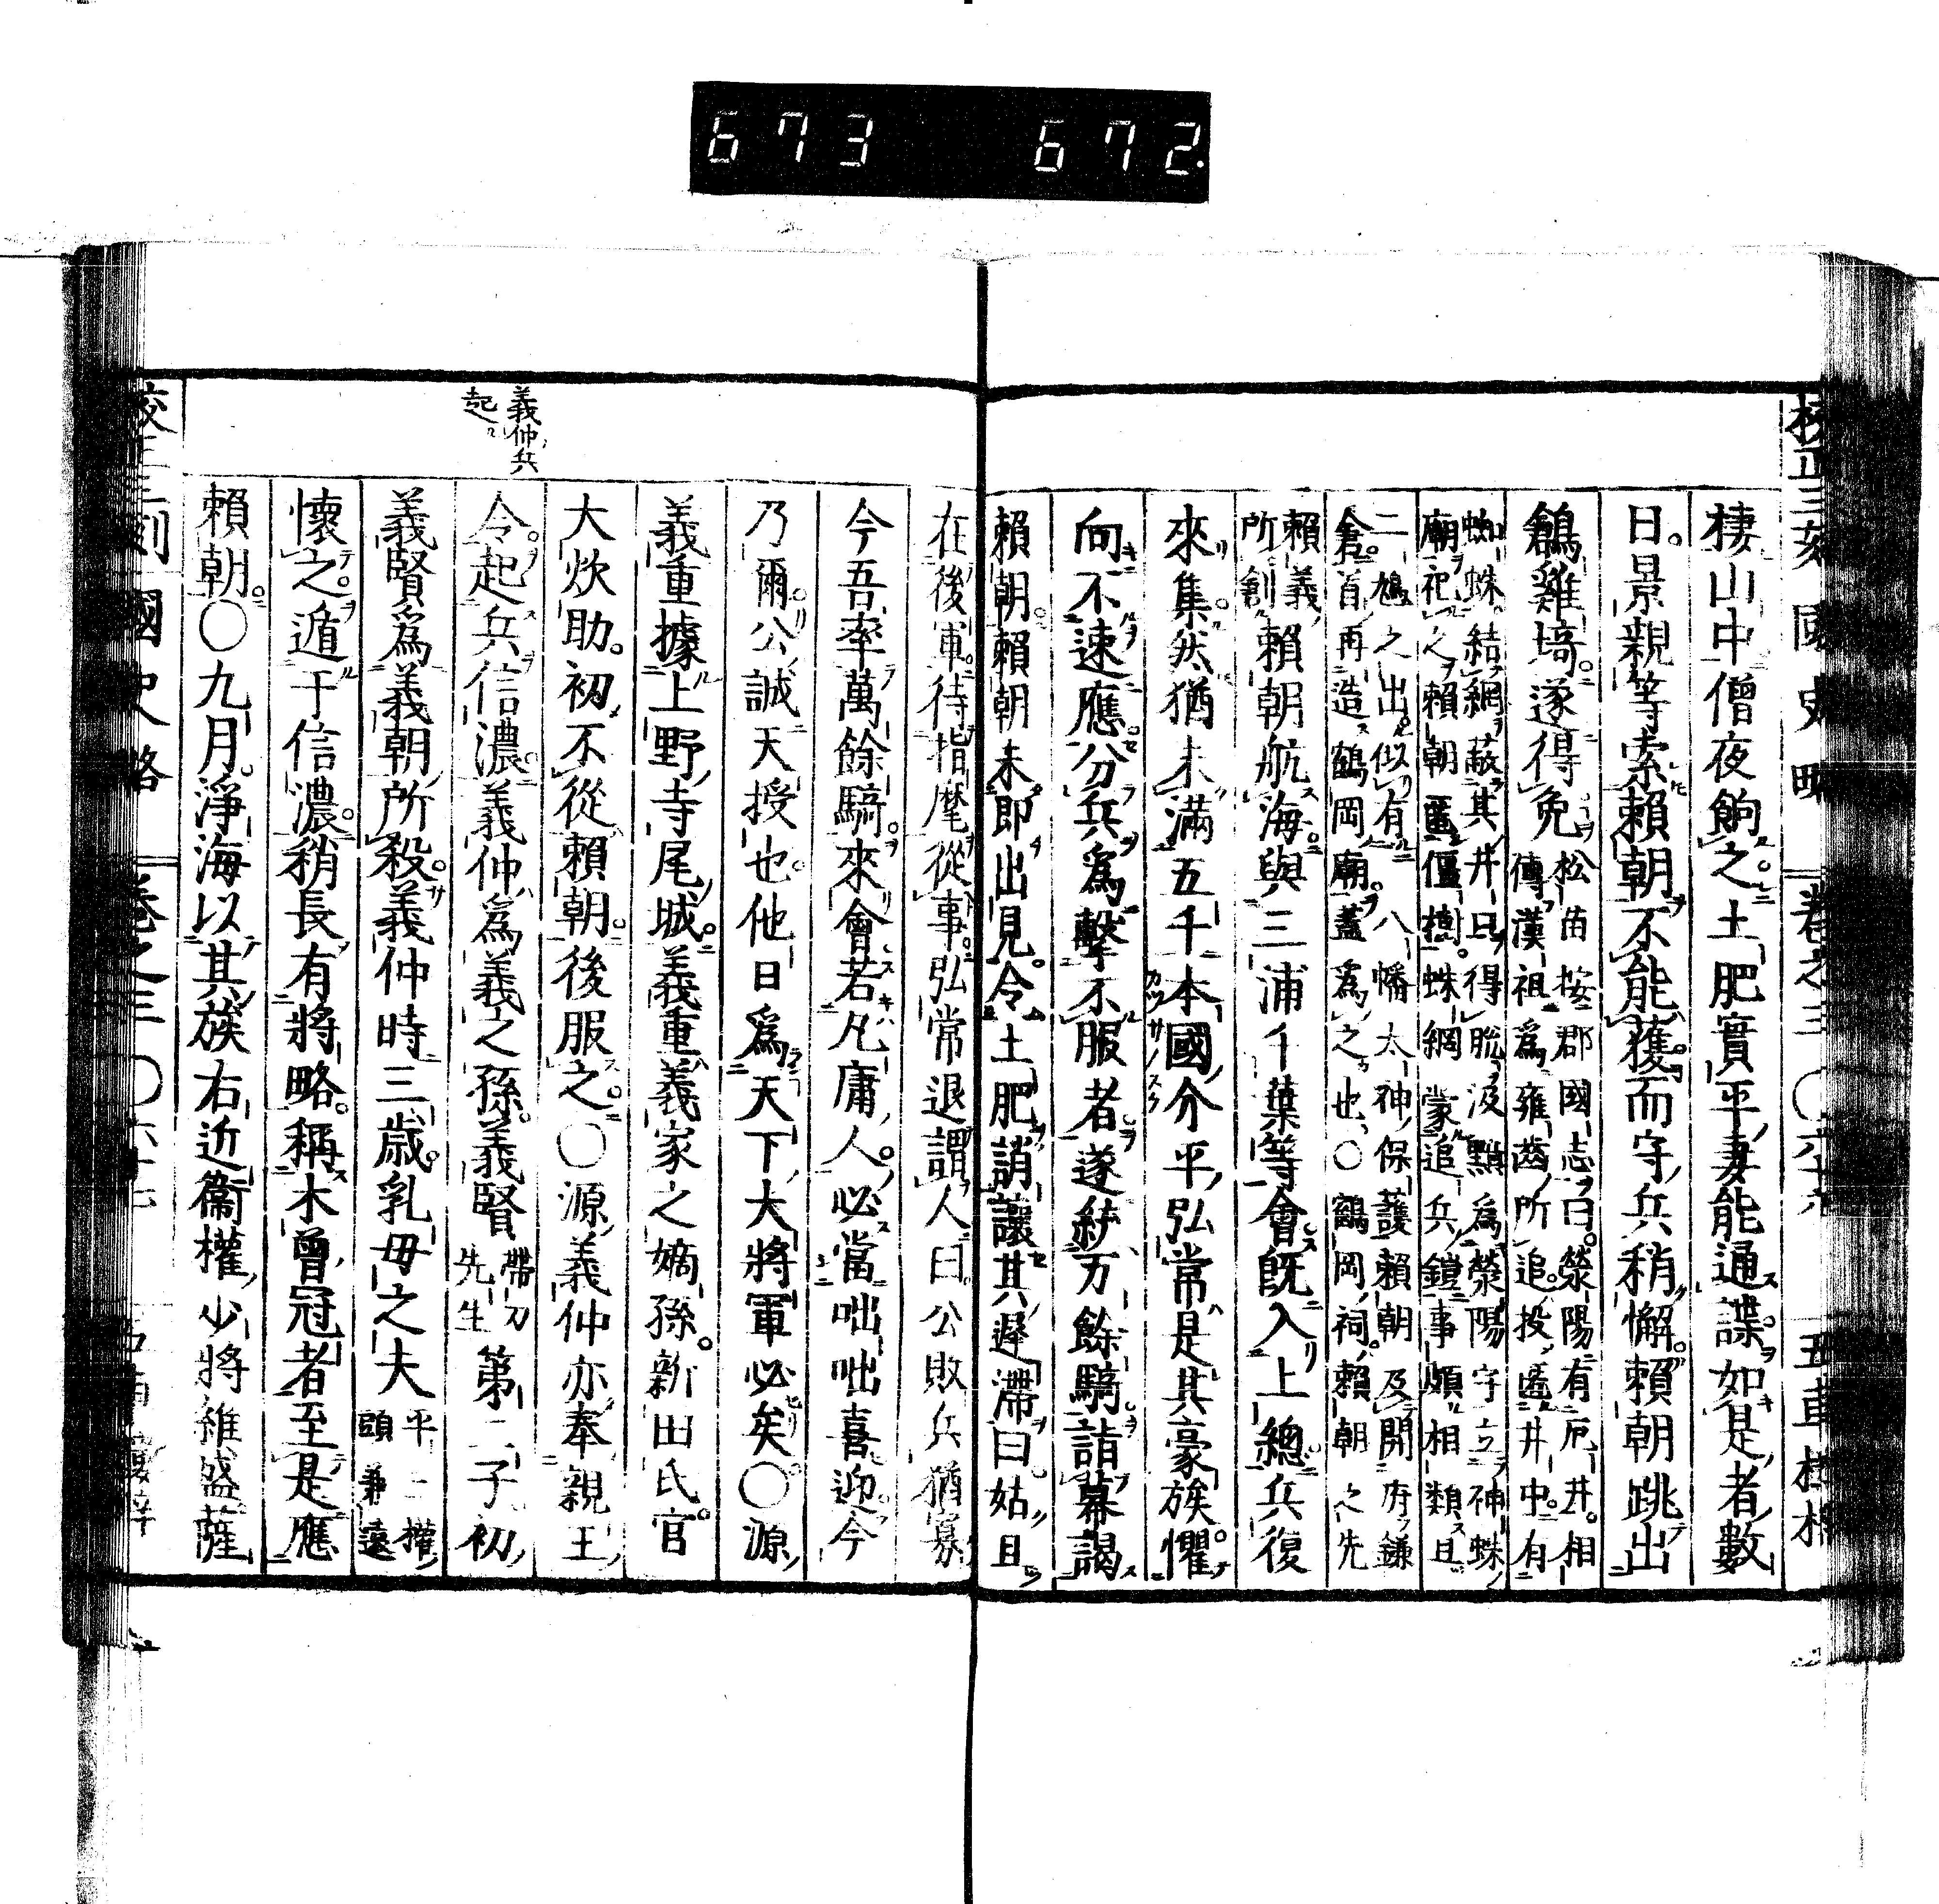 673 672
校正三刻國史略 卷之三 ○六十六 五車樓
棲山中僧夜餉之土肥實平妻能通諜如是者數
日景親等索賴朝不能獲而守兵稍懈賴朝跳出
鷦雞埼遂得免 松苗按郡國志曰滎陽有厄井相
傳漢祖爲雍齒所追投匿井中有
蜘蛛結網蔽其井口得脫汲黯爲滎陽守立神蛛
廟祀之賴朝匿僵樹蛛網蒙追兵鎧事頗相類且
二鳩之出似有八幡太神保護賴朝及開府鎌
倉首再造鶴岡廟蓋爲之也○鶴岡祠賴朝之先
賴義
所創 賴朝航海與三浦千葉等會既入上總兵復
來集然猶未滿五千本國分平弘常是其豪族懼
向不速應分兵爲擊不服者遂統万餘騎詣幕謁
賴朝賴朝未即出見令土肥誚讓其遲滯曰姑且
在後軍待指麾從事弘常退謂人曰公敗兵猶寡
今吾率萬餘騎來會若凡庸人必當咄咄喜迎今
乃爾公誠天授也他日爲天下大將軍必矣○源
義重據上野寺尾城義重義家之嫡孫新田氏官
大炊助初不從賴朝後服之○源義仲亦奉親王
義仲兵
起
令起兵信濃義仲爲義之孫義賢 帶刀
先生 第二子初
義賢爲義朝所殺義仲時三歲乳母之夫 平三權
頭兼遠
懷之遁于信濃稍長有將略稱木曾冠者至是應
賴朝○九月淨海以其族右近衞權少將維盛薩
校正三刻國史略 卷之三 ○六十七